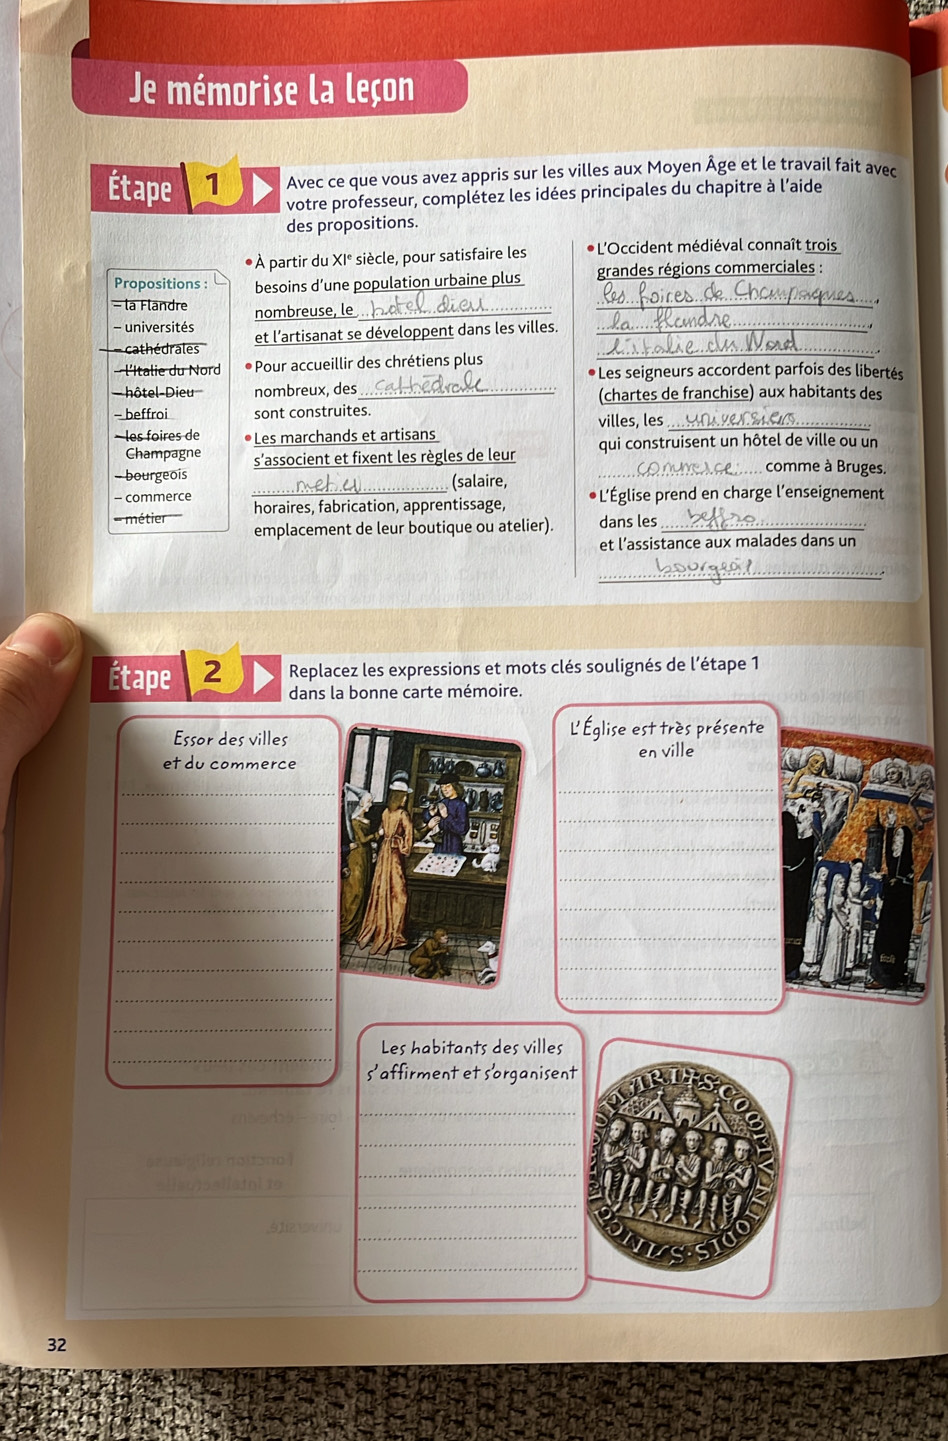 Je mémorise la leçon
Étape 1
Avec ce que vous avez appris sur les villes aux Moyen Âge et le travail fait avec
votre professeur, complétez les idées principales du chapitre à l'aide
des propositions.
Propositions :
– la Flandre
– universités
– cathédrales
– l'Italie du Nord
– hôtel-Dieu
– beffroi
– les foires de
Champagne
– bourgeois
– commerce
– métier
• À partir du XIe siècle, pour satisfaire les
besoins d'une population urbaine plus
nombreuse, le hotel dieu
et l'artisanat se développent dans les villes.
• Pour accueillir des chrétiens plus
nombreux, des cathédrale
sont construites.
• Les marchands et artisans
s'associent et fixent les règles de leur
metier (salaire,
horaires, fabrication, apprentissage,
emplacement de leur boutique ou atelier).
• L'Occident médiéval connaît trois
grandes régions commerciales :
les foires de Champagnes,
la flandre,
l'italie du Nord.
• Les seigneurs accordent parfois des libertés
(chartes de franchise) aux habitants des
villes, les
qui construisent un hôtel de ville ou un
commerce comme à Bruges.
• L'Église prend en charge l'enseignement
dans les beffro
et l'assistance aux malades dans un
bourgeois.
Étape 2
Replacez les expressions et mots clés soulignés de l'étape 1
dans la bonne carte mémoire.
Essor des villes
et du commerce
L'Église est très présente
en ville
Les habitants des villes
s'affirment et s'organisent
32